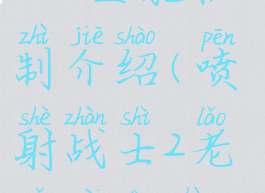 zhì jiè shào pēn
制介绍(喷
shè zhàn shì lǎo
射战士2老